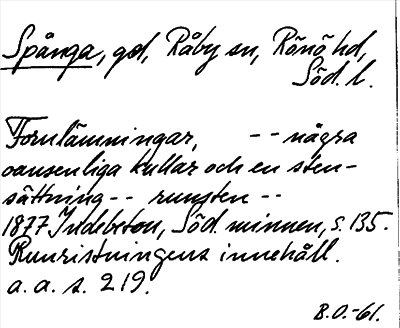 Spånga, gd, Råby sn, Rönö hd,
Söd. l.
Fornlämningar, -- några
oansenliga kullar och en sten-
sättning -- runsten --
1877 Indebetou, Söd. minnen, s. 135.
Runristningens innehåll.
a. a. s. 219.
B.O.-61.